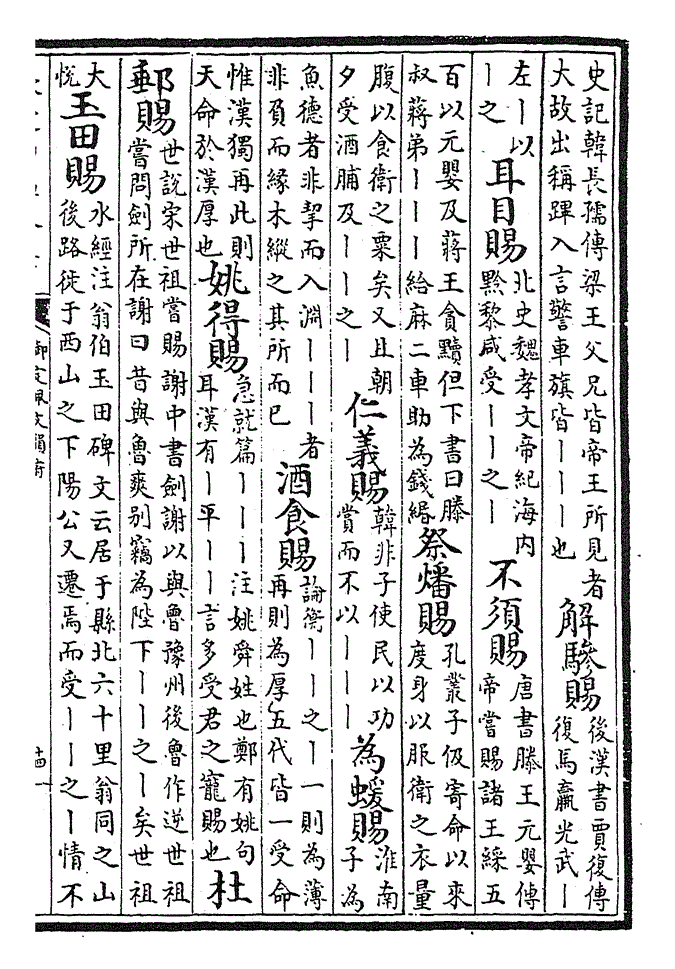 史記韓長孺傳梁王父兄皆帝王所見者
大故出稱蹕入言警車旗皆丨丨丨也
解驂賜
後漢書賈復傳
復馬羸光武丨
左丨以
丨之
耳目賜
北史魏孝文帝紀海内
黔黎咸受丨丨之丨
不須賜
唐書滕王元嬰傳
帝嘗賜諸王綵五
百以元嬰及蔣王貪黷但下書曰滕
叔蔣弟丨丨丨給麻二車助為錢緡
祭燔賜
孔叢子伋寄命以來
度身以服衛之衣量
腹以食衛之粟矣又且朝
夕受酒脯及丨丨之丨
仁義賜
韓非子使民以功
賞而不以丨丨丨
為蝯賜
淮南
子為
魚德者非挈而入淵丨丨丨者
非負而緣木縱之其所而已
酒食賜
論衡丨丨之丨一則為薄
再則為厚五代皆一受命
惟漢獨再此則
天命於漢厚也
姚得賜
急就篇丨丨丨注姚舜姓也鄭有姚句
耳漢有丨平丨丨言多受君之寵賜也
杜
郵賜
世說宋世祖嘗賜謝中書劍謝以與魯豫州後魯作逆世祖
嘗問劍所在謝曰昔與魯爽别竊為陛下丨丨之丨矣世祖
大
悅
玉田賜
水經注翁伯玉田碑文云居于縣北六十里翁同之山
後路徙于西山之下陽公又遷焉而受丨丨之丨情不
御定佩文韻府